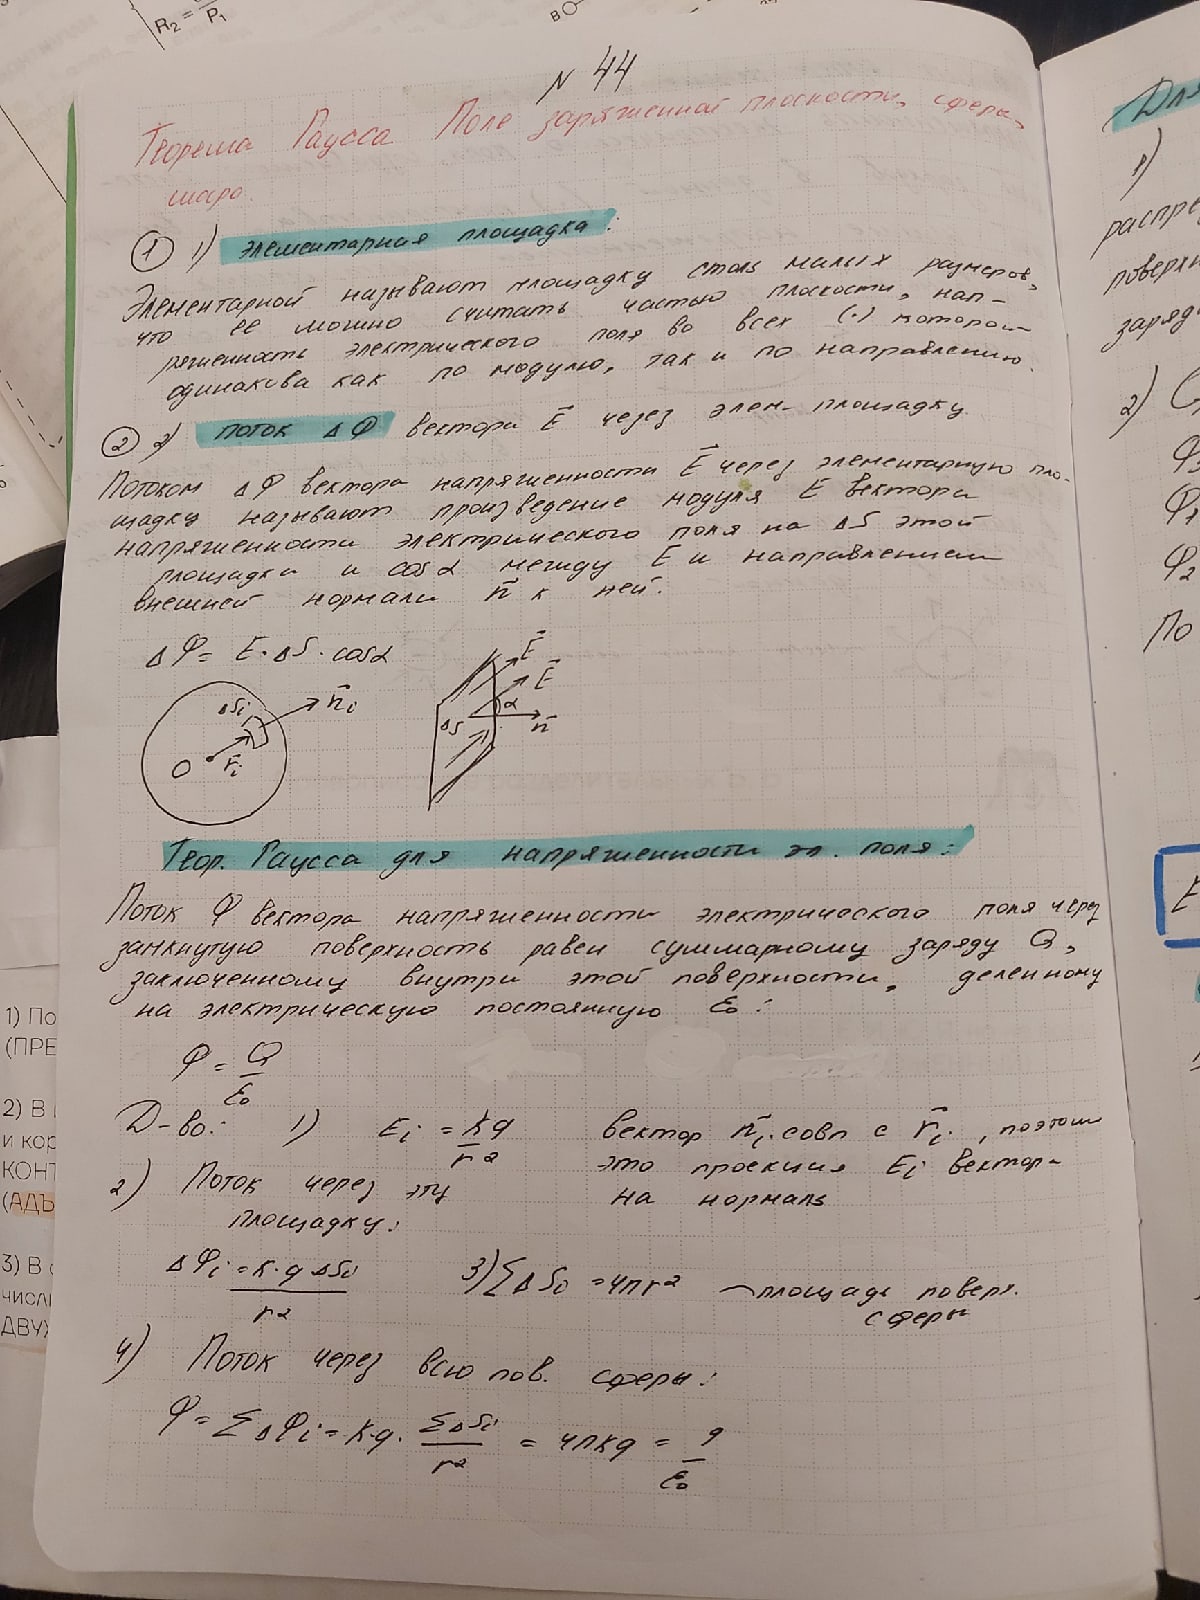 R₂ = P₁
В
N 44
Теорема Гаусса Поле заряженной плоскости, сферы,
шара.
① 1) Элементарная площадка:
Элементарной называют площадку столь малых размеров,
что ее можно считать частью плоскости, нап-
ряженность электрического поля во всех (·) которой
одинакова как по модулю, так и по направлению.
② 2) поток ΔΦ вектора E⃗ через элем- площадку
Потоком ΔΦ вектора напряженности E⃗ через элементарную пло-
щадку называют произведение модуля E вектора
напряженности электрического поля на ΔS этой
площадки и cosα между E и направлением
внешней нормали n⃗ к ней.
ΔΦ = E·ΔS·cosα
E⃗
E⃗
α
ΔS
n⃗
ΔSi
n⃗i
O
r⃗i
Теор. Гаусса для напряженности эл. поля:
Поток Φ вектора напряженности электрического поля через
замкнутую поверхность равен суммарному заряду Q,
заключенному внутри этой поверхности, деленному
на электрическую постоянную ε₀:
Φ = Q/ε₀
Д-во: 1) Ei = kq/r² вектор n⃗i совп с r⃗i, поэтому
это проекция Ei вектор-
на нормаль
2) Поток через эту
площадку:
ΔΦi = k·q ΔSi/r² 3) ΣΔSi = 4πr² – площадь поверх.
сферы
4) Поток через всю пов. сферы:
Φ = ΣΔΦi = k·q· ΣΔSi/r² = 4πkq = q/ε₀
Для
1)
распре
поверхн
заряд
2)
Φ₁
Φ₂
По
E
1) По
(ПРЕ
2) В
и кор
КОНТ
(АДЪ
3) В
числ
ДВУХ